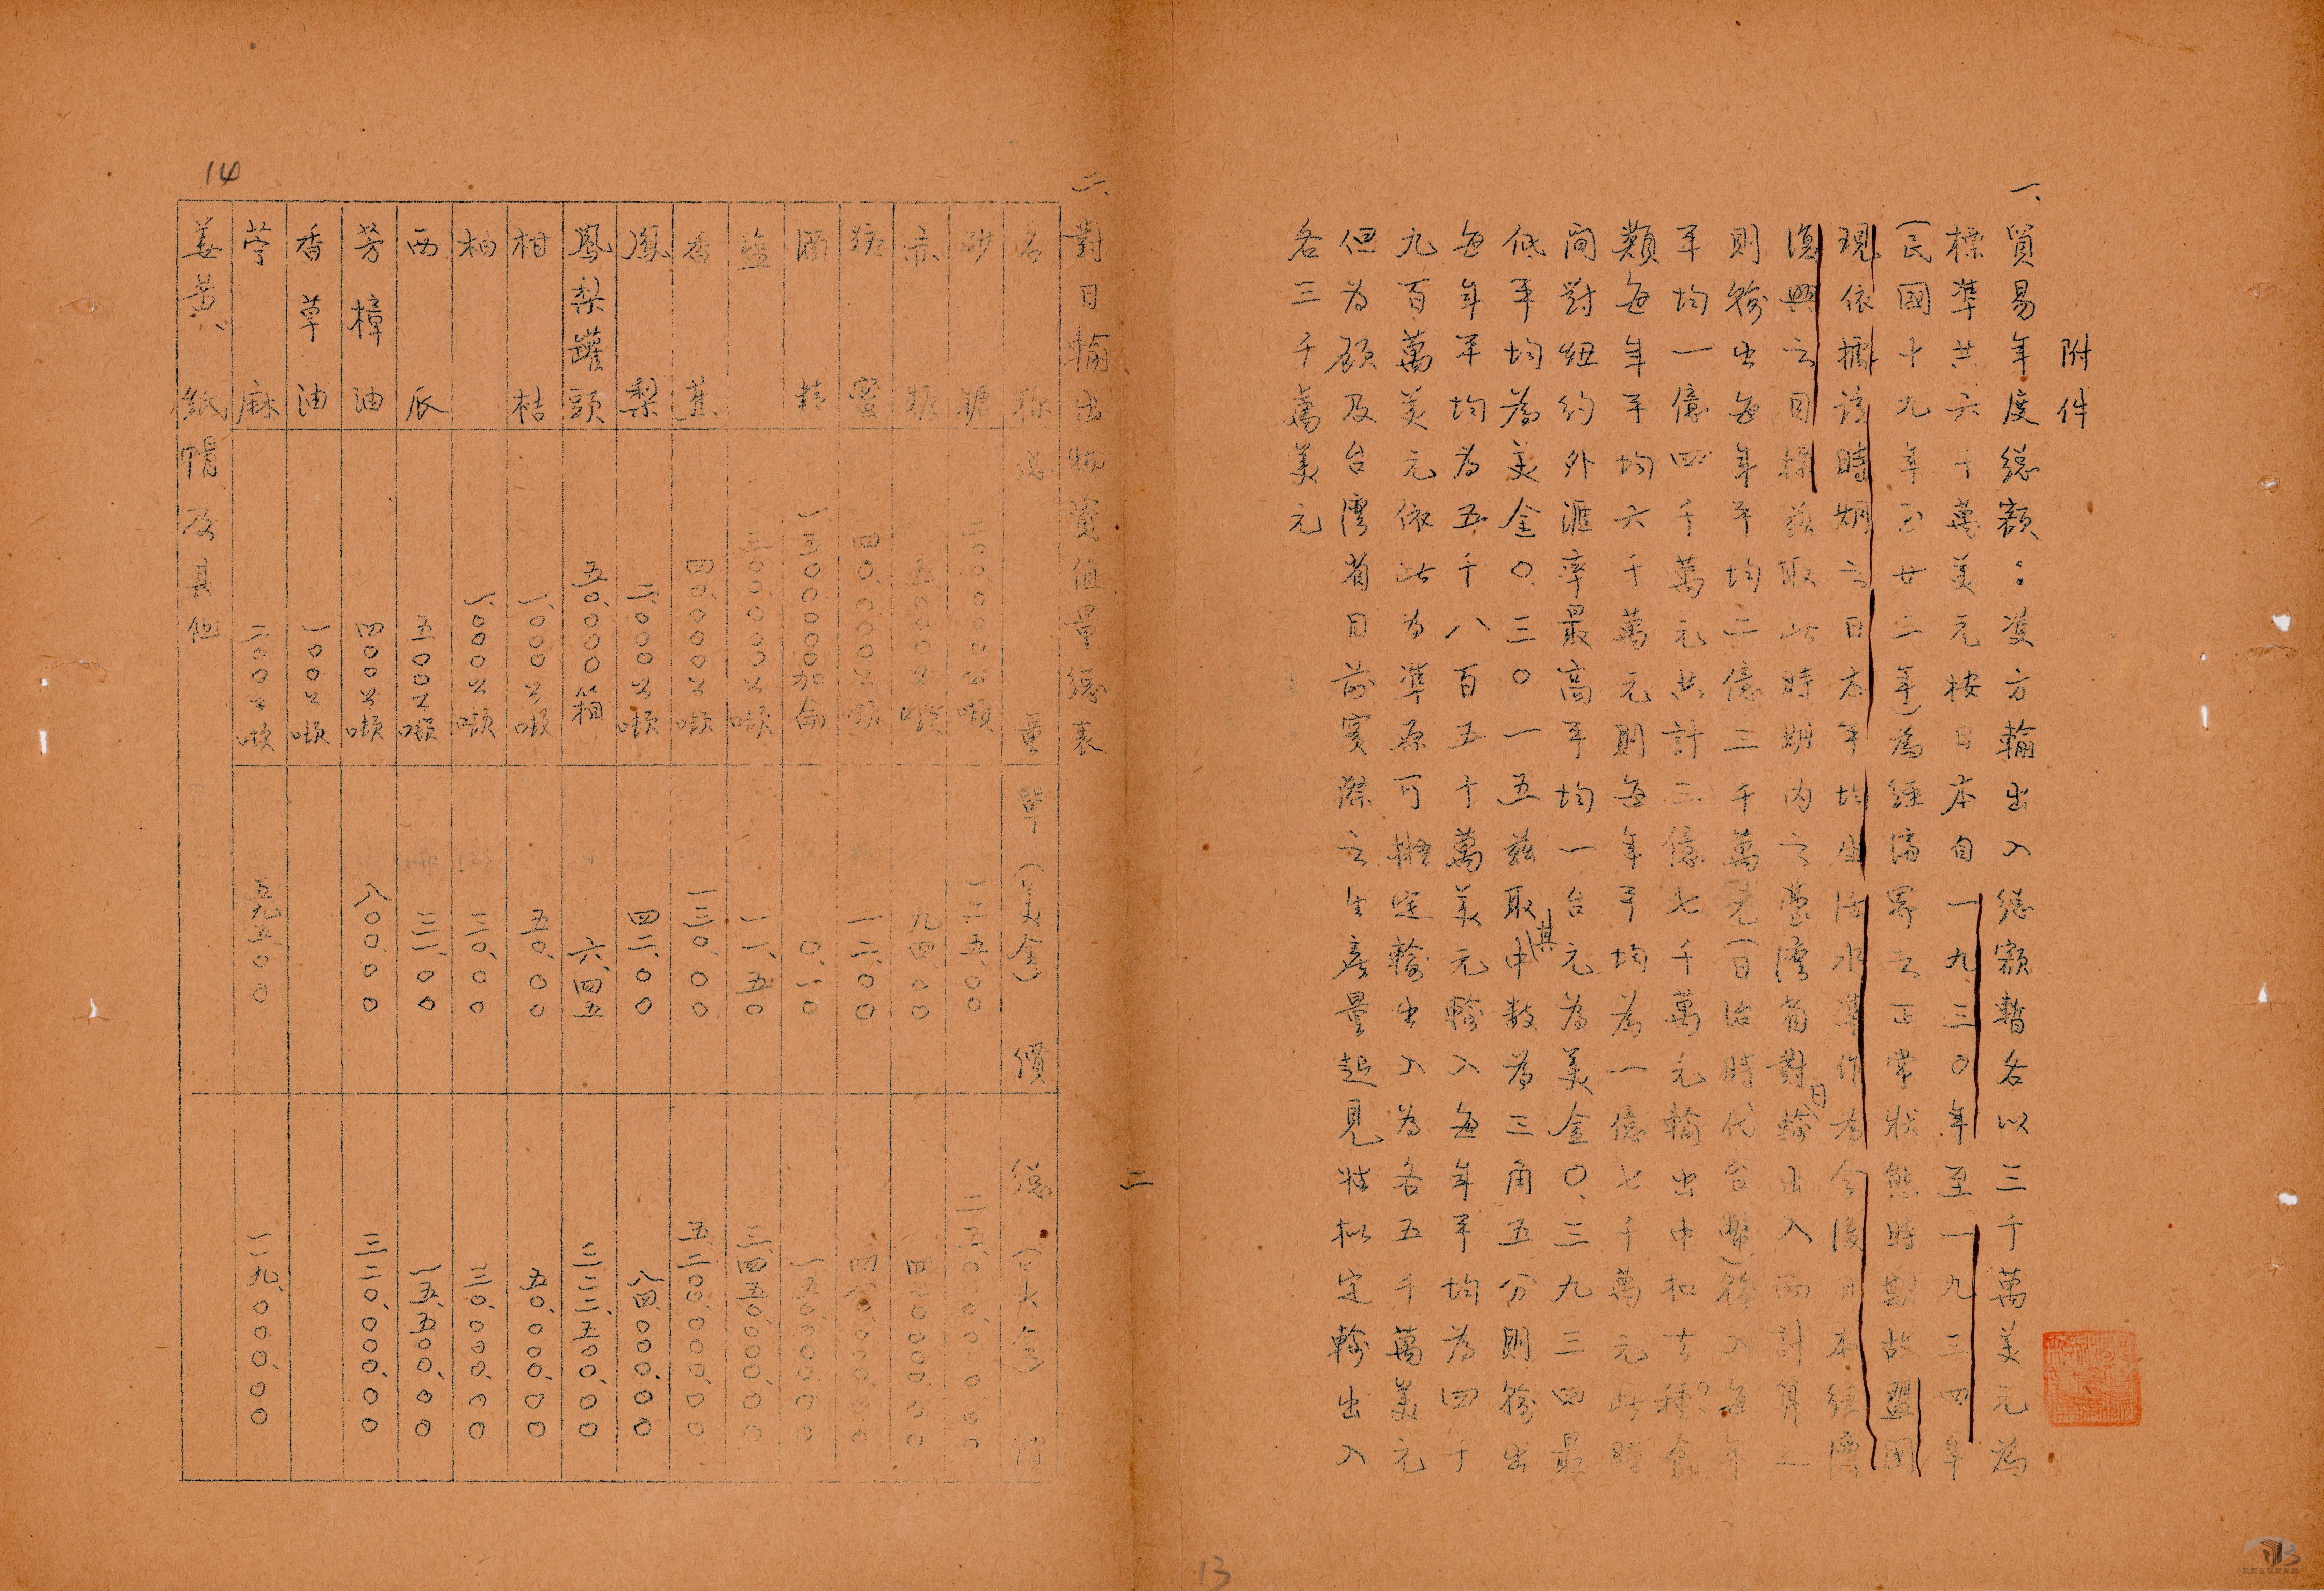 附件
一、貿易年度總額：雙方輸出入總額暫各以三千萬美元為
標準共六千萬美元按日本自一九三〇年至一九三四年
（民國十九年至廿三年）為經濟界之正常狀態時期故盟國
現依據該時期之日本平均生活水準作為今後日本經濟
復興之目標茲取此時期內之臺灣省對日輸出入而計算之
則輸出每年平均二億三千萬元（日治時代台幣）輸入每年
平均一億四千萬元共計三億七千萬元輸出中扣去種?食
類每年平均六千萬元則每年平均為一億七千萬元此時
間對紐約外滙率最高平均一台元為美金〇、三九三四最
低平均為美金〇、三〇一五茲取其中数為三角五分則輸出
每年平均為五千八百五十萬美元輸入每年平均為四千
九百萬美元依此為準原可擬定輸出入為各五千萬美元
但為顧及台灣省目前實際之生產量起見姑拟定輸出入
各三千萬美元
13
二
二、對日輸出物資值量總表
名稱 總量 單價（美金） 總值（美金）
砂糖 二〇〇〇〇公噸 一二五、〇〇 二五〇〇、〇〇〇、〇〇
赤糖 五、〇〇〇公噸 九四、〇〇 四七〇、〇〇〇、〇〇
糖蜜 四〇、〇〇〇公噸 一二、〇〇 四八〇、〇〇〇、〇〇
酒精 一五〇〇〇〇〇加侖 〇、一〇 一五〇、〇〇〇、〇〇
鹽 三〇〇、〇〇〇公噸 一一、五〇 三、四五〇、〇〇〇、〇〇
香蕉 四〇、〇〇〇公噸 一三〇、〇〇 五、二〇〇、〇〇〇、〇〇
鳳梨 二、〇〇〇公噸 四二、〇〇 八四、〇〇〇、〇〇
鳳梨罐頭 五〇、〇〇〇箱 六、四五 三二二、五〇〇、〇〇
柑桔 一、〇〇〇公噸 五〇、〇〇 五〇、〇〇〇、〇〇
柚 一、〇〇〇公噸 三〇、〇〇 三〇、〇〇〇、〇〇
西瓜 五〇〇公噸 三一、〇〇 一五、五〇〇、〇〇
芳樟油 四〇〇公噸 八〇〇、〇〇 三二〇、〇〇〇、〇〇
香草油 一〇〇公噸
苧麻 二〇〇公噸 五九五、〇〇 一一九、〇〇〇、〇〇
姜黃、紙帽及其他
14